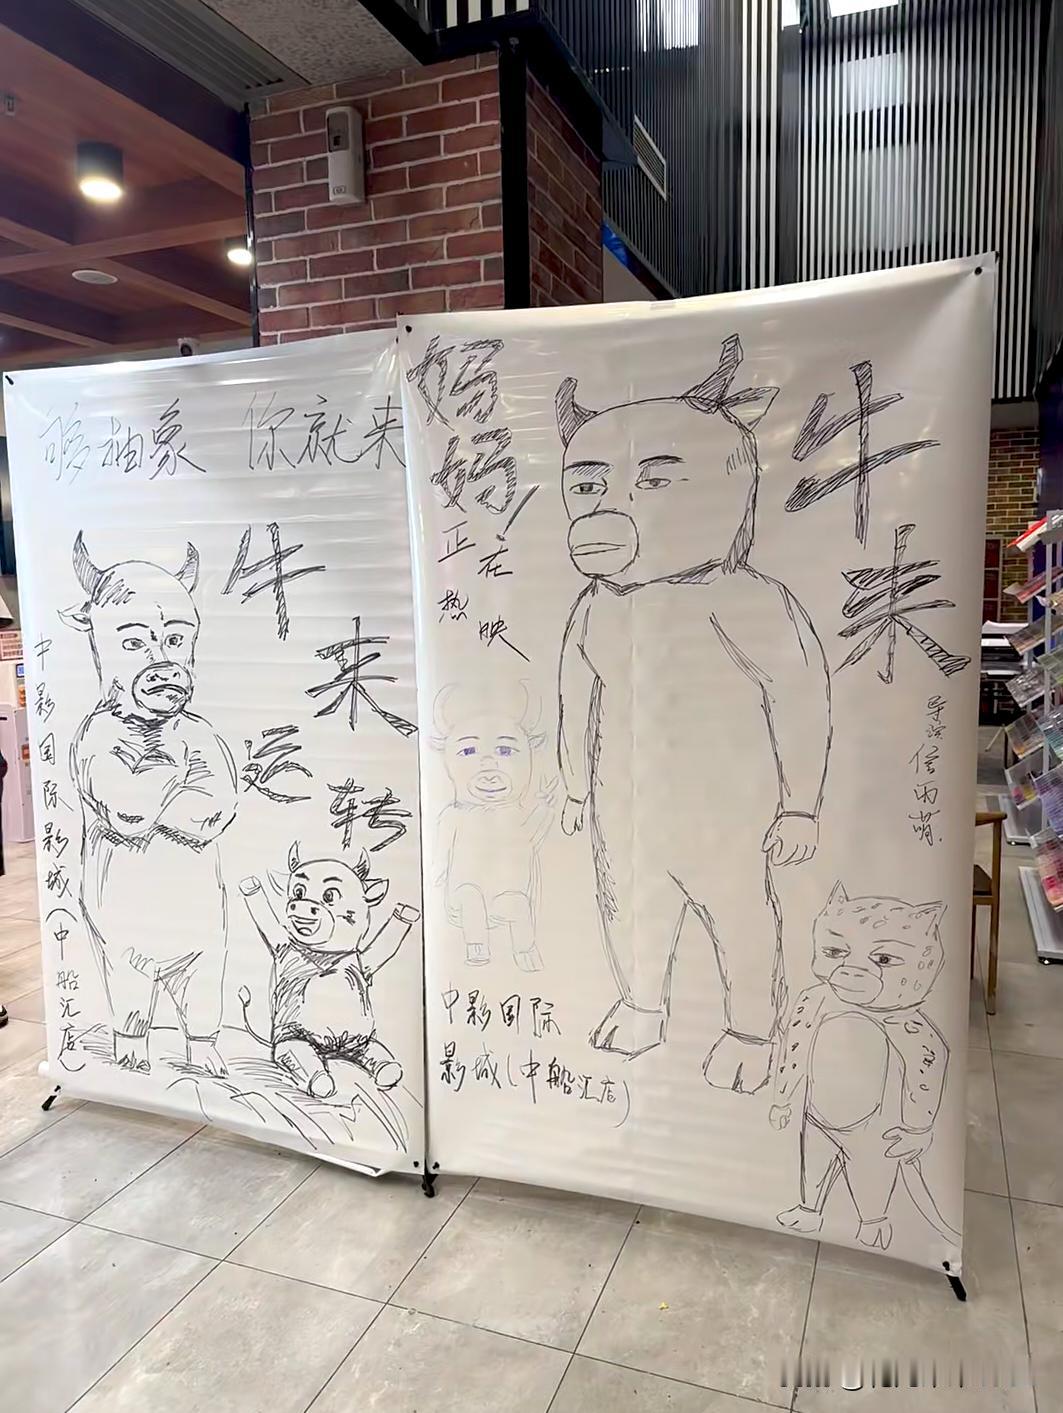 够抽象 你就来
牛来运转
中影国际影城(中船汇店)
妈妈!
正在热映
牛来
导演信雨萌
中影国际
影城(中船汇店)